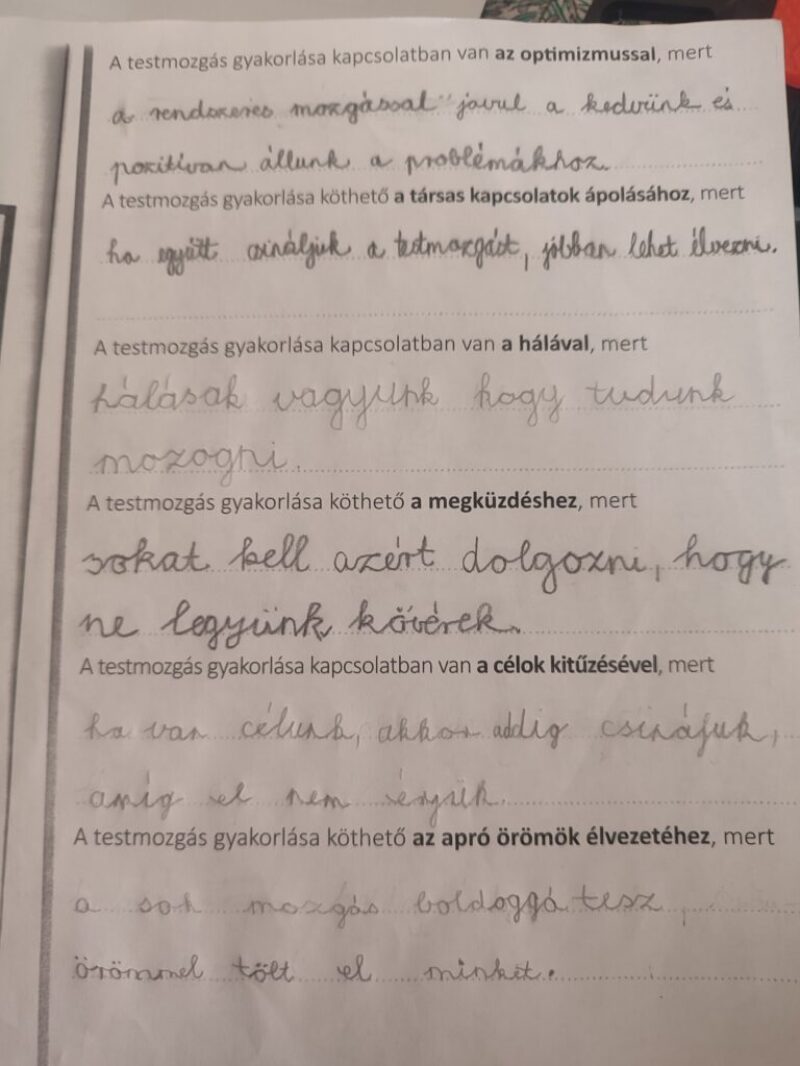 A testmozgás gyakorlása kapcsolatban van az optimizmussal, mert
a rendszeres mozgással javul a kedvünk és
pozitívan állunk a problémákhoz.
A testmozgás gyakorlása köthető a társas kapcsolatok ápolásához, mert
ha együtt csináljuk a testmozgást, jobban lehet élvezni.
A testmozgás gyakorlása kapcsolatban van a hálával, mert
hálásak vagyunk hogy tudunk
mozogni.
A testmozgás gyakorlása köthető a megküzdéshez, mert
sokat kell azért dolgozni, hogy
ne legyünk kövérek.
A testmozgás gyakorlása kapcsolatban van a célok kitűzésével, mert
ha van célunk, akkor addig csinájuk,
amíg el nem érjük.
A testmozgás gyakorlása köthető az apró örömök élvezetéhez, mert
a sok mozgás boldoggá tesz,
örömmel tölt el minket.